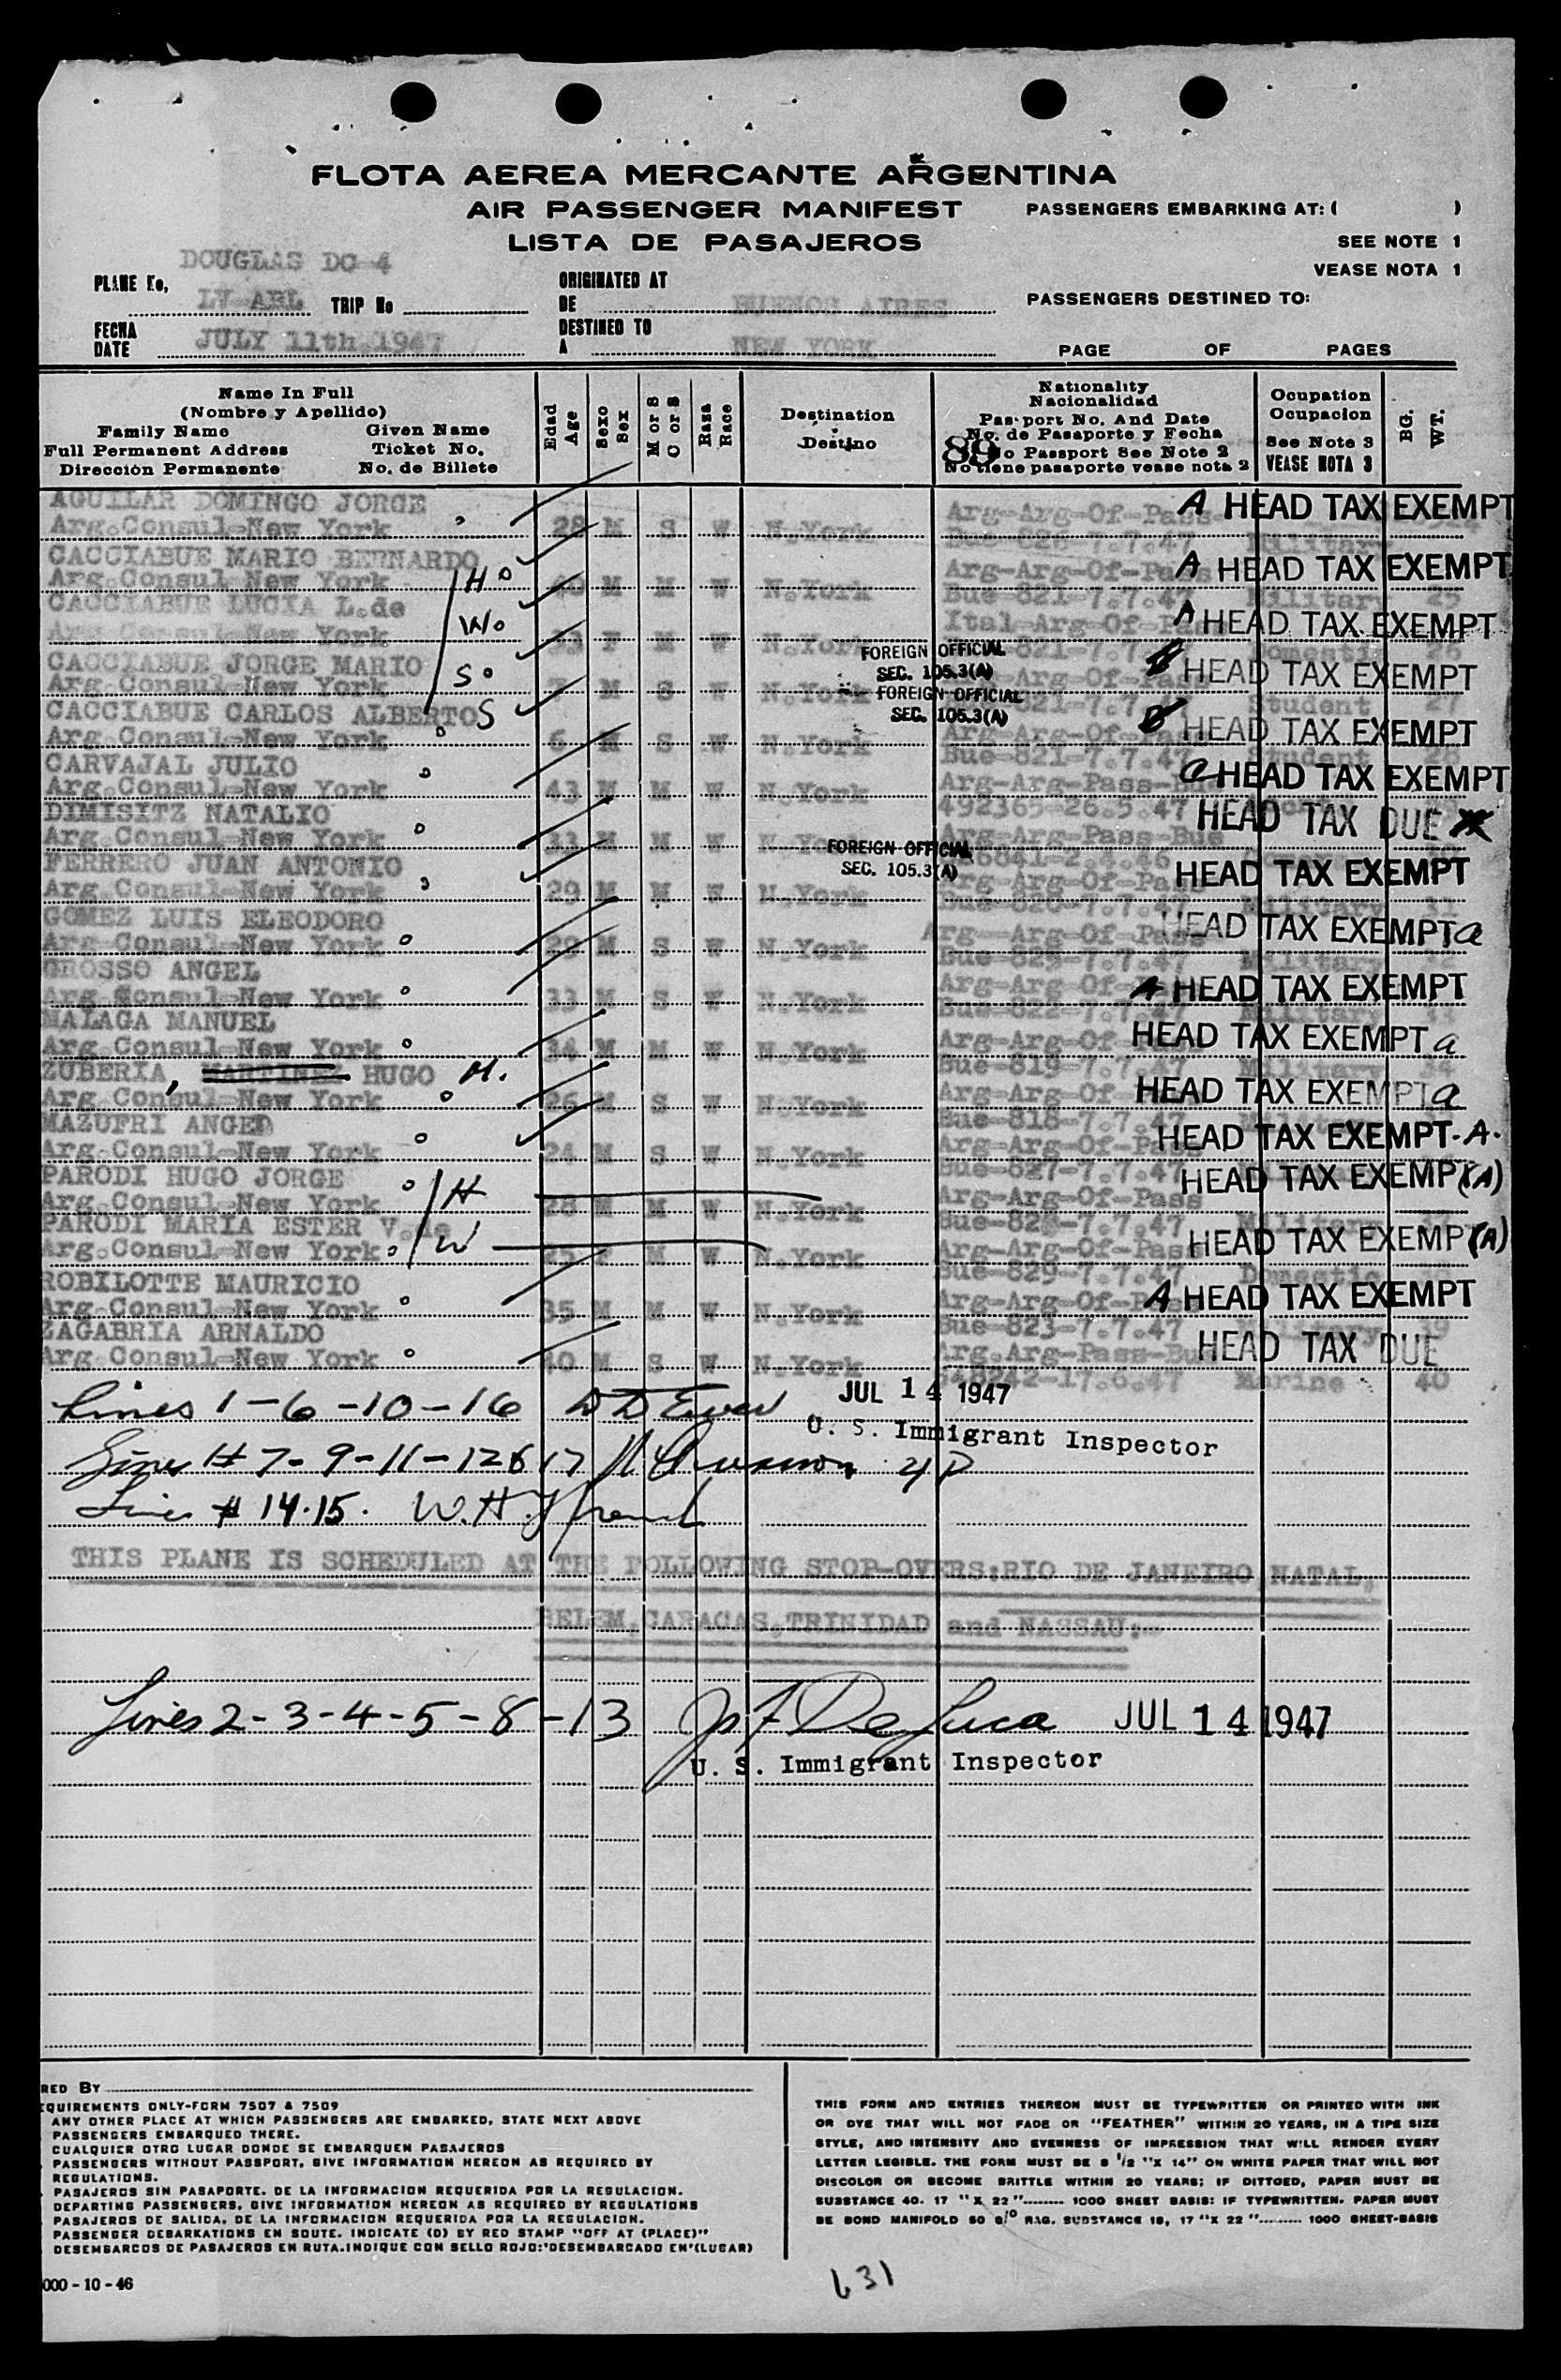 FLOTA AEREA MERCANTE ARGENTINA
AIR PASSENGER MANIFEST
LISTA DE PASAJEROS
PASSENGERS EMBARKING AT: ( )
SEE NOTE 1
VEASE NOTA 1
PASSENGERS DESTINED TO:
PAGE OF PAGES
DOUGLAS DC 4
PLANE No, LV-ABL TRIP No
FECHA DATE JULY 11th.1947
ORIGINATED AT
DE BUENOS AIRES
DESTINED TO
A NEW YORK
Name In Full
(Nombre y Apellido)
Family Name Given Name
Full Permanent Address Ticket No.
Dirección Permanente No. de Billete
Edad Age
Sexo Sex
M or S C or S
Raza Race
Destination
Destino
Nationality
Nacionalidad
Pasport No. And Date
No. de Pasaporte y Fecha
89 No Passport See Note 2
No tiene pasaporte vease nota 2
Ocupation
Ocupacion
See Note 3
VEASE NOTA 3
BG. WT.
AGUILAR DOMINGO JORGE Arg-Arg-Of-Pass- A HEAD TAX EXEMPT
Arg.Consul-New York 28 M S W N.York Bue-826-7.7.47 Military
CACCIABUE MARIO BERNARDO H Arg-Arg-Of-Pass A HEAD TAX EXEMPT
Arg.Consul New York 40 M M W N.York Bue-821-7.7.47 Military 25
CACCIABUE LUCIA L.de W Ital-Arg-Of- A HEAD TAX EXEMPT
Arg.Consul-New York 33 F M W N.York 821-7.7. Domestic 26
FOREIGN OFFICIAL
SEC. 105.3(A)
CACCIABUE JORGE MARIO S Arg-Of-Pass HEAD TAX EXEMPT
Arg.Consul-New York 7 M S W N.York 821-7.7.4 Student 27
FOREIGN OFFICIAL
SEC. 105.3(A)
CACCIABUE CARLOS ALBERTO S Arg-Arg-Of-Pass HEAD TAX EXEMPT
Arg.Consul-New York 6 M S W N.York Bue-821-7.7.47 Student 28
CARVAJAL JULIO Arg-Arg-Pass-Bue a HEAD TAX EXEMPT
Arg.Consul-New York 43 M M W N.York 492365-26.5.47
DIMISITZ NATALIO Arg-Arg-Pass-Bue HEAD TAX DUE
Arg.Consul-New York 33 M M W N.York 6841-2.4.46
FOREIGN OFFICIAL
SEC. 105.3(A)
FERRERO JUAN ANTONIO Arg-Arg-Of-Pass HEAD TAX EXEMPT
Arg.Consul-New York 29 M M W N.York Bue-820-7.7.47 Military 31
GOMEZ LUIS ELEODORO Arg-Arg-Of-Pass HEAD TAX EXEMPT a
Arg-Consul-New York 29 M S W N.York Bue-825-7.7.47 Military 32
GROSSO ANGEL Arg-Arg-Of-Pass A HEAD TAX EXEMPT
Arg Consul-New York 33 M S W N.York Bue-822-7.7.47 Military 33
MALAGA MANUEL Arg-Arg-Of-Pass HEAD TAX EXEMPT a
Arg-Consul-New York 34 M M W N.York Bue-819-7.7.47 Military 34
ZUBERIA, MARTINEZ HUGO H. Arg-Arg-Of-Pass HEAD TAX EXEMPT a
Arg-Consul-New York 26 M S W N.York Bue-818-7.7.47
MAZUFRI ANGEL Arg-Arg-Of-Pass HEAD TAX EXEMPT-A.
Arg.Consul-New York 24 M S W N.York Bue-827-7.7.47
PARODI HUGO JORGE H Arg-Arg-Of-Pass HEAD TAX EXEMP(A)
Arg-Consul-New York 28 M M W N.York 7.7.47
PARODI MARIA ESTER V.de W Arg-Arg-Of-Pass HEAD TAX EXEMP(A)
Arg.Consul-New York 25 F M W N.York Bue-829-7.7.47 Domestic
ROBILOTTE MAURICIO Arg-Arg-Of-Pass A HEAD TAX EXEMPT
Arg-Consul-New York 35 M M W N.York Bue-823-7.7.47 Military 39
ZAGABRIA ARNALDO Arg.Arg-Pass-Bue HEAD TAX DUE
Arg-Consul-New York 40 M S W N.York 17.6.47 Marine 40
Lines 1-6-10-16 JUL 14 1947
U. S. Immigrant Inspector
Lines # 7-9-11-12 & 17
Lines # 14-15. W.H.
THIS PLANE IS SCHEDULED AT THE FOLLOWING STOP-OVERS:RIO DE JANEIRO,NATAL,
BELEM,CARACAS,TRINIDAD and NASSAU:-
Lines 2-3-4-5-8-13 De Luca JUL 14 1947
U. S. Immigrant Inspector
RED BY
EQUIREMENTS ONLY-FORM 7507 & 7509
ANY OTHER PLACE AT WHICH PASSENGERS ARE EMBARKED, STATE NEXT ABOVE
PASSENGERS EMBARQUED THERE.
CUALQUIER OTRO LUGAR DONDE SE EMBARQUEN PASAJEROS
PASSENGERS WITHOUT PASSPORT, GIVE INFORMATION HEREON AS REQUIRED BY
REGULATIONS.
PASAJEROS SIN PASAPORTE. DE LA INFORMACION REQUERIDA POR LA REGULACION.
DEPARTING PASSENGERS, GIVE INFORMATION HEREON AS REQUIRED BY REGULATIONS
PASAJEROS DE SALIDA, DE LA INFORMACION REQUERIDA POR LA REGULACION.
PASSENGER DEBARKATIONS EN ROUTE. INDICATE (D) BY RED STAMP "OFF AT (PLACE)"
DESEMBARCOS DE PASAJEROS EN RUTA.INDIQUE CON SELLO ROJO:"DESEMBARCADO EN"(LUGAR)
000 - 10 - 46
THIS FORM AND ENTRIES THEREON MUST BE TYPEWRITTEN OR PRINTED WITH INK
OR DYE THAT WILL NOT FADE OR "FEATHER" WITHIN 20 YEARS, IN A TIPE SIZE
STYLE, AND INTENSITY AND EVENNESS OF IMPRESSION THAT WILL RENDER EVERY
LETTER LEGIBLE. THE FORM MUST BE 8 1/2 "X 14" ON WHITE PAPER THAT WILL NOT
DISCOLOR OR BECOME BRITTLE WITHIN 20 YEARS; IF DITTOED, PAPER MUST BE
SUBSTANCE 40. 17 "X 22" 1000 SHEET BASIS: IF TYPEWRITTEN. PAPER MUST
BE BOND MANIFOLD 50 0/0 RAG. SUBSTANCE 16, 17 "X 22" 1000 SHEET-BASIS
631